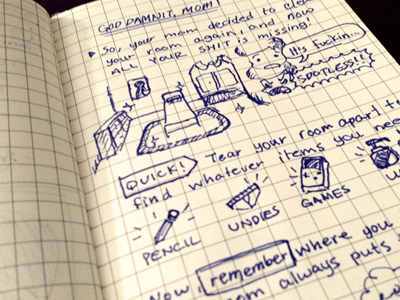 GOD DAMNIT, MOM!
So, your mom decided to clean
your room again, and now
ALL YOUR SHIT is missing!
It's Fuckin...
SPOTLESS!!!
QUICK! Tear your room apart to
find whatever items you need
PENCIL
UNDIES
GAMES
Now, remember where you
mom always puts